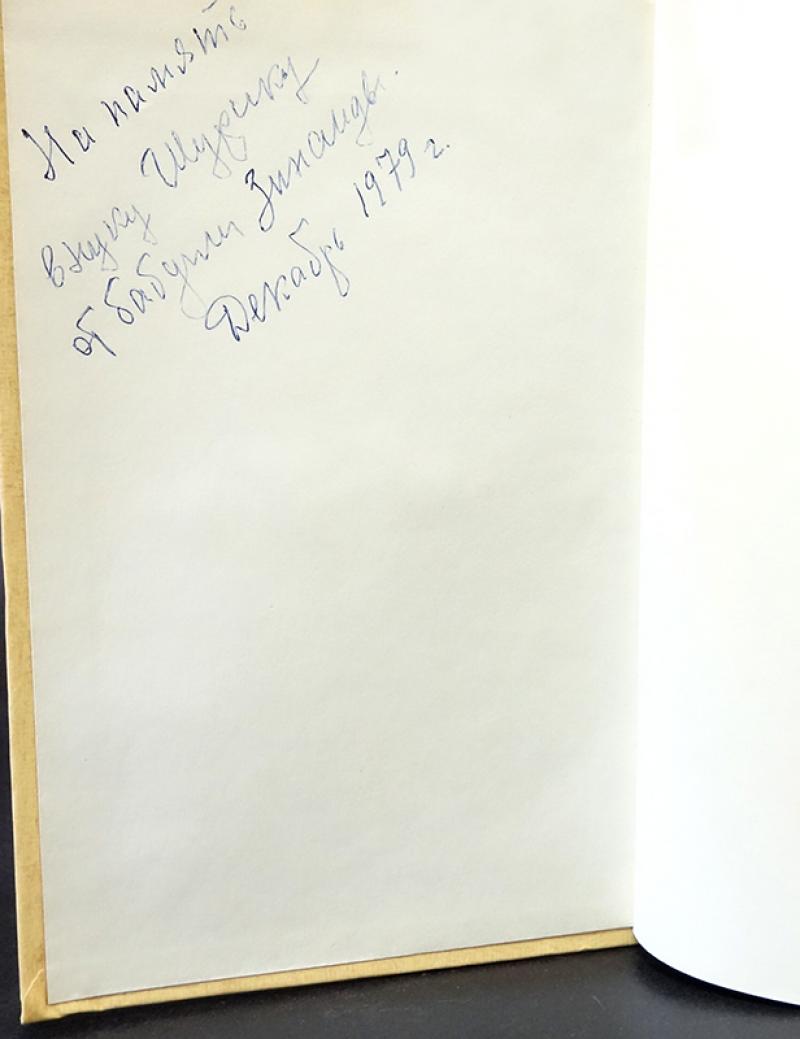 На память
внуку Шурику
от бабушки Зинаиды.
Декабрь 1979 г.